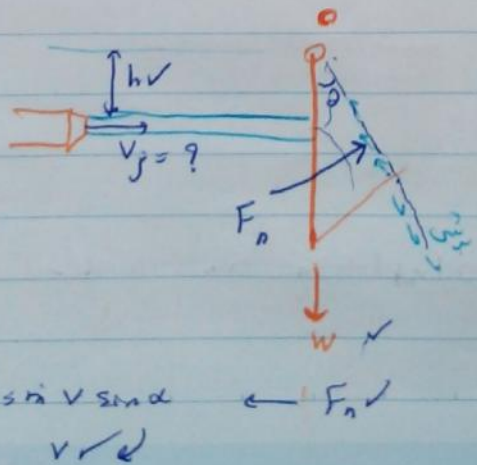 O
h✓
θ
V_j = ?
F_n
W ✓
sin V sinα ← F_n ✓
V ✓